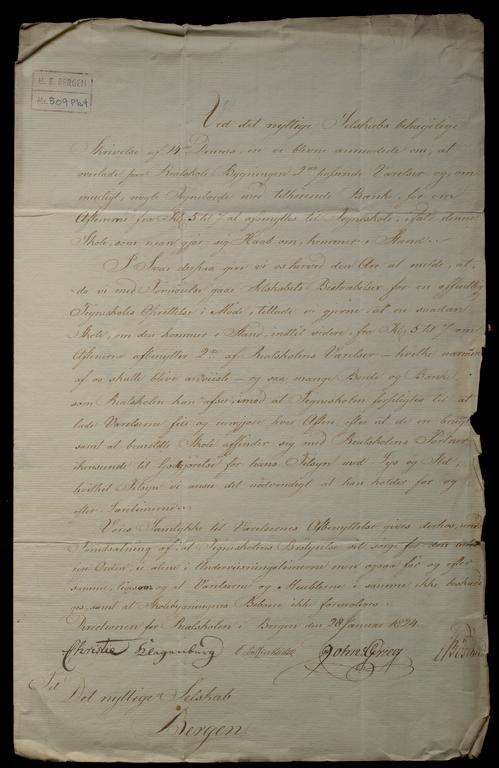 U. B. BERGEN
Ms. 509 Pk 4
Ved det nyttige Selskabs behagelige
Skrivelse af 14de Dennes, ere vi blevne anmodede om, at
overlade paa Realskole Bygningen 2de passende Værelser og, om
mueligt, nogle Tegneborde med tilhørende Bænke, for om
Aftenerne fra Kl. 5 til 7 at afbenyttes til Tegneskole, ifald denne
Skole, som man gjør sig Haab om, kommer i Stand.
I Svar derpaa give vi os herved den Ære at melde, at,
da vi med Fornøielse see Selskabets Bestræbelser for en offentlig
Tegneskoles Oprettelse i Møde, tillade vi gjerne, at en saadan
Skole, om den kommer i Stand, indtil videre, fra Kl. 5 til 7 om
Aftenerne afbenytter 2de af Realskolens Værelser – hvilke nærmere
af os skulle blive anviiste – og saa mange Borde og Bænke,
som Realskolen kan afsee, imod at Tegneskolen forpligtes til at
lade Værelserne feie og rengjøre hver Aften, efter at de ere
samt at bemeldte Skole affinder sig med Realskolens Portner
henseende til Godtgjørelse for hans Tilsyn med Lys og Ild,
hvilket Tilsyn vi ansee det nødvendigt at han holder før og
efter Læretimerne.
Vores Samtykke til Værelsernes Afbenyttelse gives derhos, under
Forudsætning af: at Tegneskolens Bestyrelse vil sørge for den
Orden, ei alene i Underviisningstimerne men ogsaa før og efter
samme, ligesom og at Værelserne og Meublerne i samme ikke beskadi-
ges, samt at Skolebygningens Beboere ikke foruroliges.
Directionen for Realskolen i Bergen den 28 Januar 1824.
Christie Hagenburg John Grieg
Til
Det nyttige Selskab
Bergen